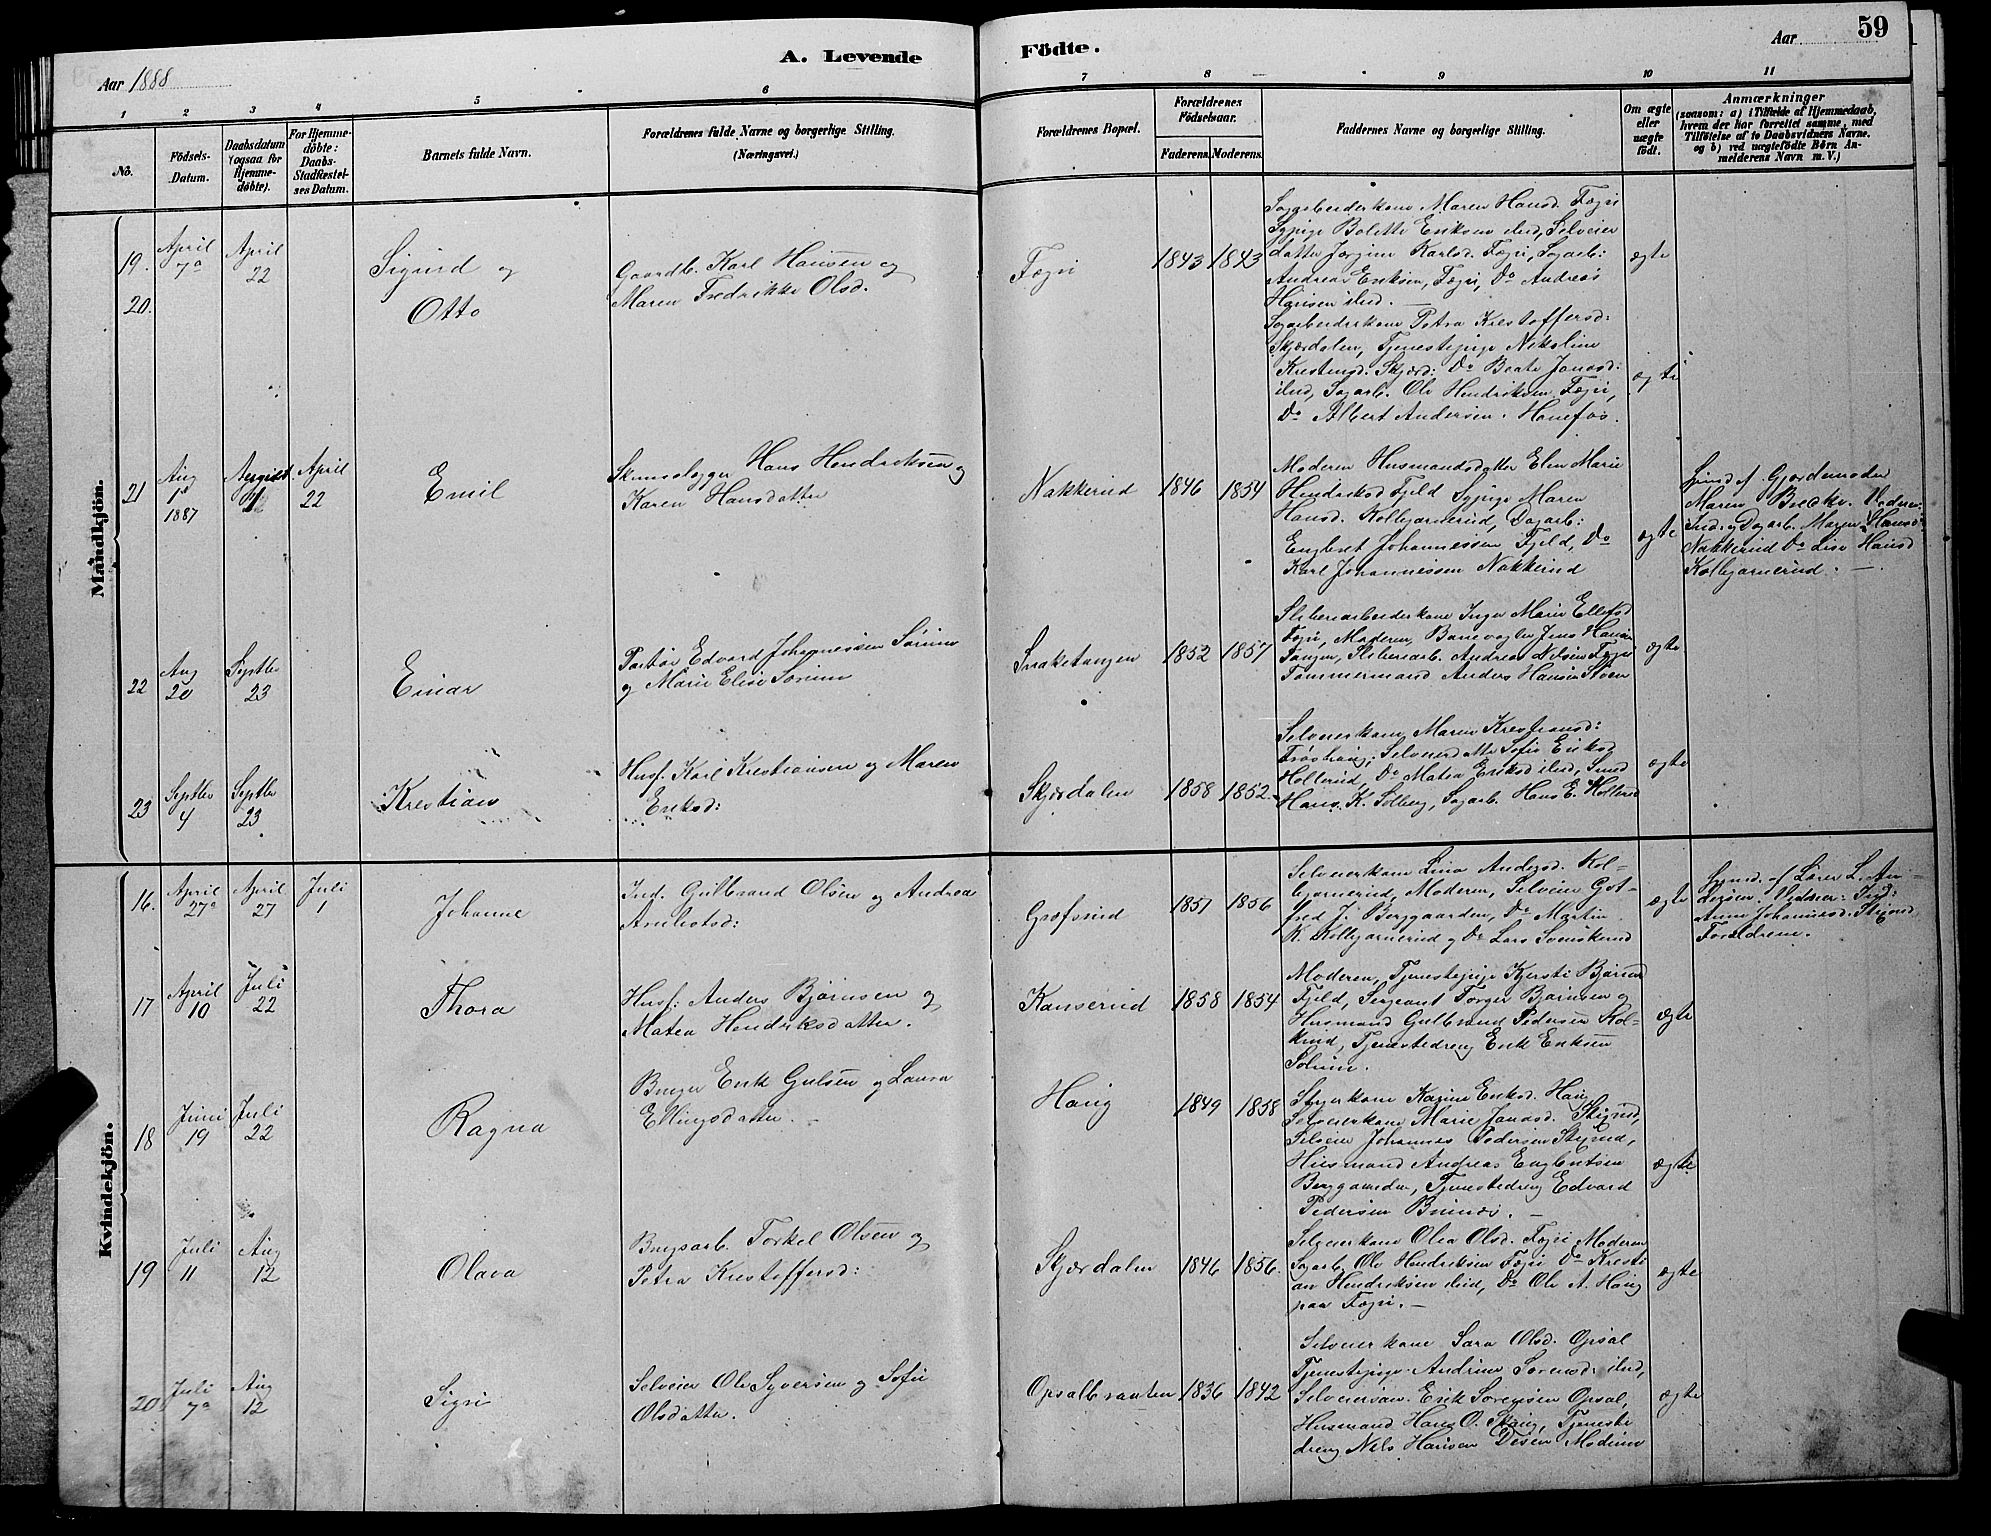 A. Levende
Födte.
59
Aar 1888
Aar
1
2
3
4
5
6
7
8
9
10
11
No.
Födsels-Datum.
Daabsdatum (ogsaa for Hjemme-döbte).
For Hjemme-döbte: Daabs-Stadfæstel-ses Datum.
Barnets fulde Navn.
Forældrenes fulde Navne og borgerlige Stilling.
(Næringsvei.)
Forældrenes Bopæl.
Forældrenes Födselsaar.
Faderens.
Moderens.
Faddernes Navne og borgerlige Stilling.
Om ægte eller uægte født.
Anmærkninger
(saasom: a) i Tilfælde af Hjemmedaab,
hvem der har forrettet samme, med
Tilföielse af to Daabsvidners Navne.
og b) ved uægtefödte Börn An-
melderens Navn m. V.)
Mandkjön.
19.
20.
April 7de
April 22
Sigurd og
Otto
Gaardb. Karl Hansen og
Maren Fredrikke Olsd.
Fægri
1843
1843
Sagarbeiderkone Maren Hansd. Fægri
Sypige Bolette Eriksen ibid, Selveier
datter Jørgine Karlsd. Fægri, Sagarb:
Andreas Eriksen, Fægri, Do Andreas
Hansen ibid. —
ægte
Sagarbeiderkone Petra Krestoffersd:
Skjærdalen, Tjenestepige Nikoline
Krestensd. Skjærd: Do Beate Jonasd:
ibid, Sagarb. Ole Hendriksen Fægri,
Do Albert Andersen. Hønefos.
ægte
21
Aug
1ste
1887
August
1
April
22
Emil
Hans Hendriksen og
Karen Hansdatter
Nakkerud
1846
1854
Moderen Husmandsdatter Elen Marie
Hendriksd Fjeld Sypige Maren
Hansd. Kolbjørnerud, Dagarb:
Engbret Johannessen Fjeld, Do
Karl Johannessen Nakkerud
ægte
Hjmd af Gjordemoder
Maren Bredke. Vidner:
Ind. og Dagarb. Maren Hansd
Nakkerud Do Lise Hansd
Kolbjørnerud. —
22
Aug
20
Septbr
23
Einar
Edvard Johannessen Sørum
og Marie Elise Sørum
Snaketangen
1852
1857
Sliberiarbeiderkone Inger Marie Ellefsd
Fægri, Moderen, Banevogter Jens Hansen
Tangen, Sliberiarb. Andreas Nilsen Fægri
Tømmermand Anders Hansen Støen
ægte
23
Septbr
4
Septbr
23
Krestian
Husf. Karl Krestiansen og Maren
Eriksd:
Skjærdalen
1858
1852.
Selveierkone Maren Krestiansd:
Frøshaug, Selveierdatter Sofie Eriksd
Hollerud, Do Matea Eriksd ibid, Smed
Hans K. Solberg, Sagarb. Hans E. Hollerud
ægte
Kvindekjön.
16.
April
27de
April
27
Juli
1
Johanne
Ind. Gulbrand Olsen og Andrea
Grøfsrud
1851
1856
Selveierkone Lina Andersd. Kol-
bjørnerud, Moderen, Selveier Got-
fred J. Berggaarden, Do Martin
K. Kolbjørnerud og Do Lars Svenskerud
ægte
Hjmd. af Lærer L. An-
dersen. Vidner: Ind:
Anne Johannesd. Stixrud,
Forældrene.
17
April
10
Juli
22
Thora
Husf: Anders Bjørnsen og
Matea Hendriksdatter.
Kanserud
1858
1854
Moderen, Tjenestepige Kjersti Bjørnsd
Fjeld, Sergeant Torger Bjørnsen og
Husmand Gulbrand Pedersen Kol-
krud, Tjenestedreng Erik Eriksen
Solum.
ægte
18
Juni
19
Juli
22
Ragna
Bruger Erik Gulsen og Laura
Ellingsdatter. —
Haug
1849
1858
Styrkone Karine Eriksd. Haug
Selveierkone Marie Jonasd. Stixrud,
Selveier Johannes Pedersen Stixrud,
Husmand Andreas Engbretsen
Berggaarden, Tjenestedreng Edvard
Pedersen —
ægte
19
Juli
11
Aug
12
Olava
Brugsarb. Torkel Olsen og
Petra Krestoffersd:
Skjærdalen
1846
1856.
Selveierkone Olea Olsd. Fægri Moderen
Sagarb. Ole Hendriksen Fægri Do Kresti
an Hendriksen ibid, Do Ole A. Haug
paa Fægri. —
ægte
20
Juli
7de
Aug
12
Sigri
Selveier Ole Syversen og Sofie
Olsdatter.
Opsalbraaten
1836
1842
Selveierkone Sara Olsd. Opsal
Tjenestepige Andrine Sorensd. ibid,
Selveiersøn. Erik Sorensen Opsal,
Husmand Hans O. Haug, Tjeneste
dreng Nils Hansen Modum
ægte